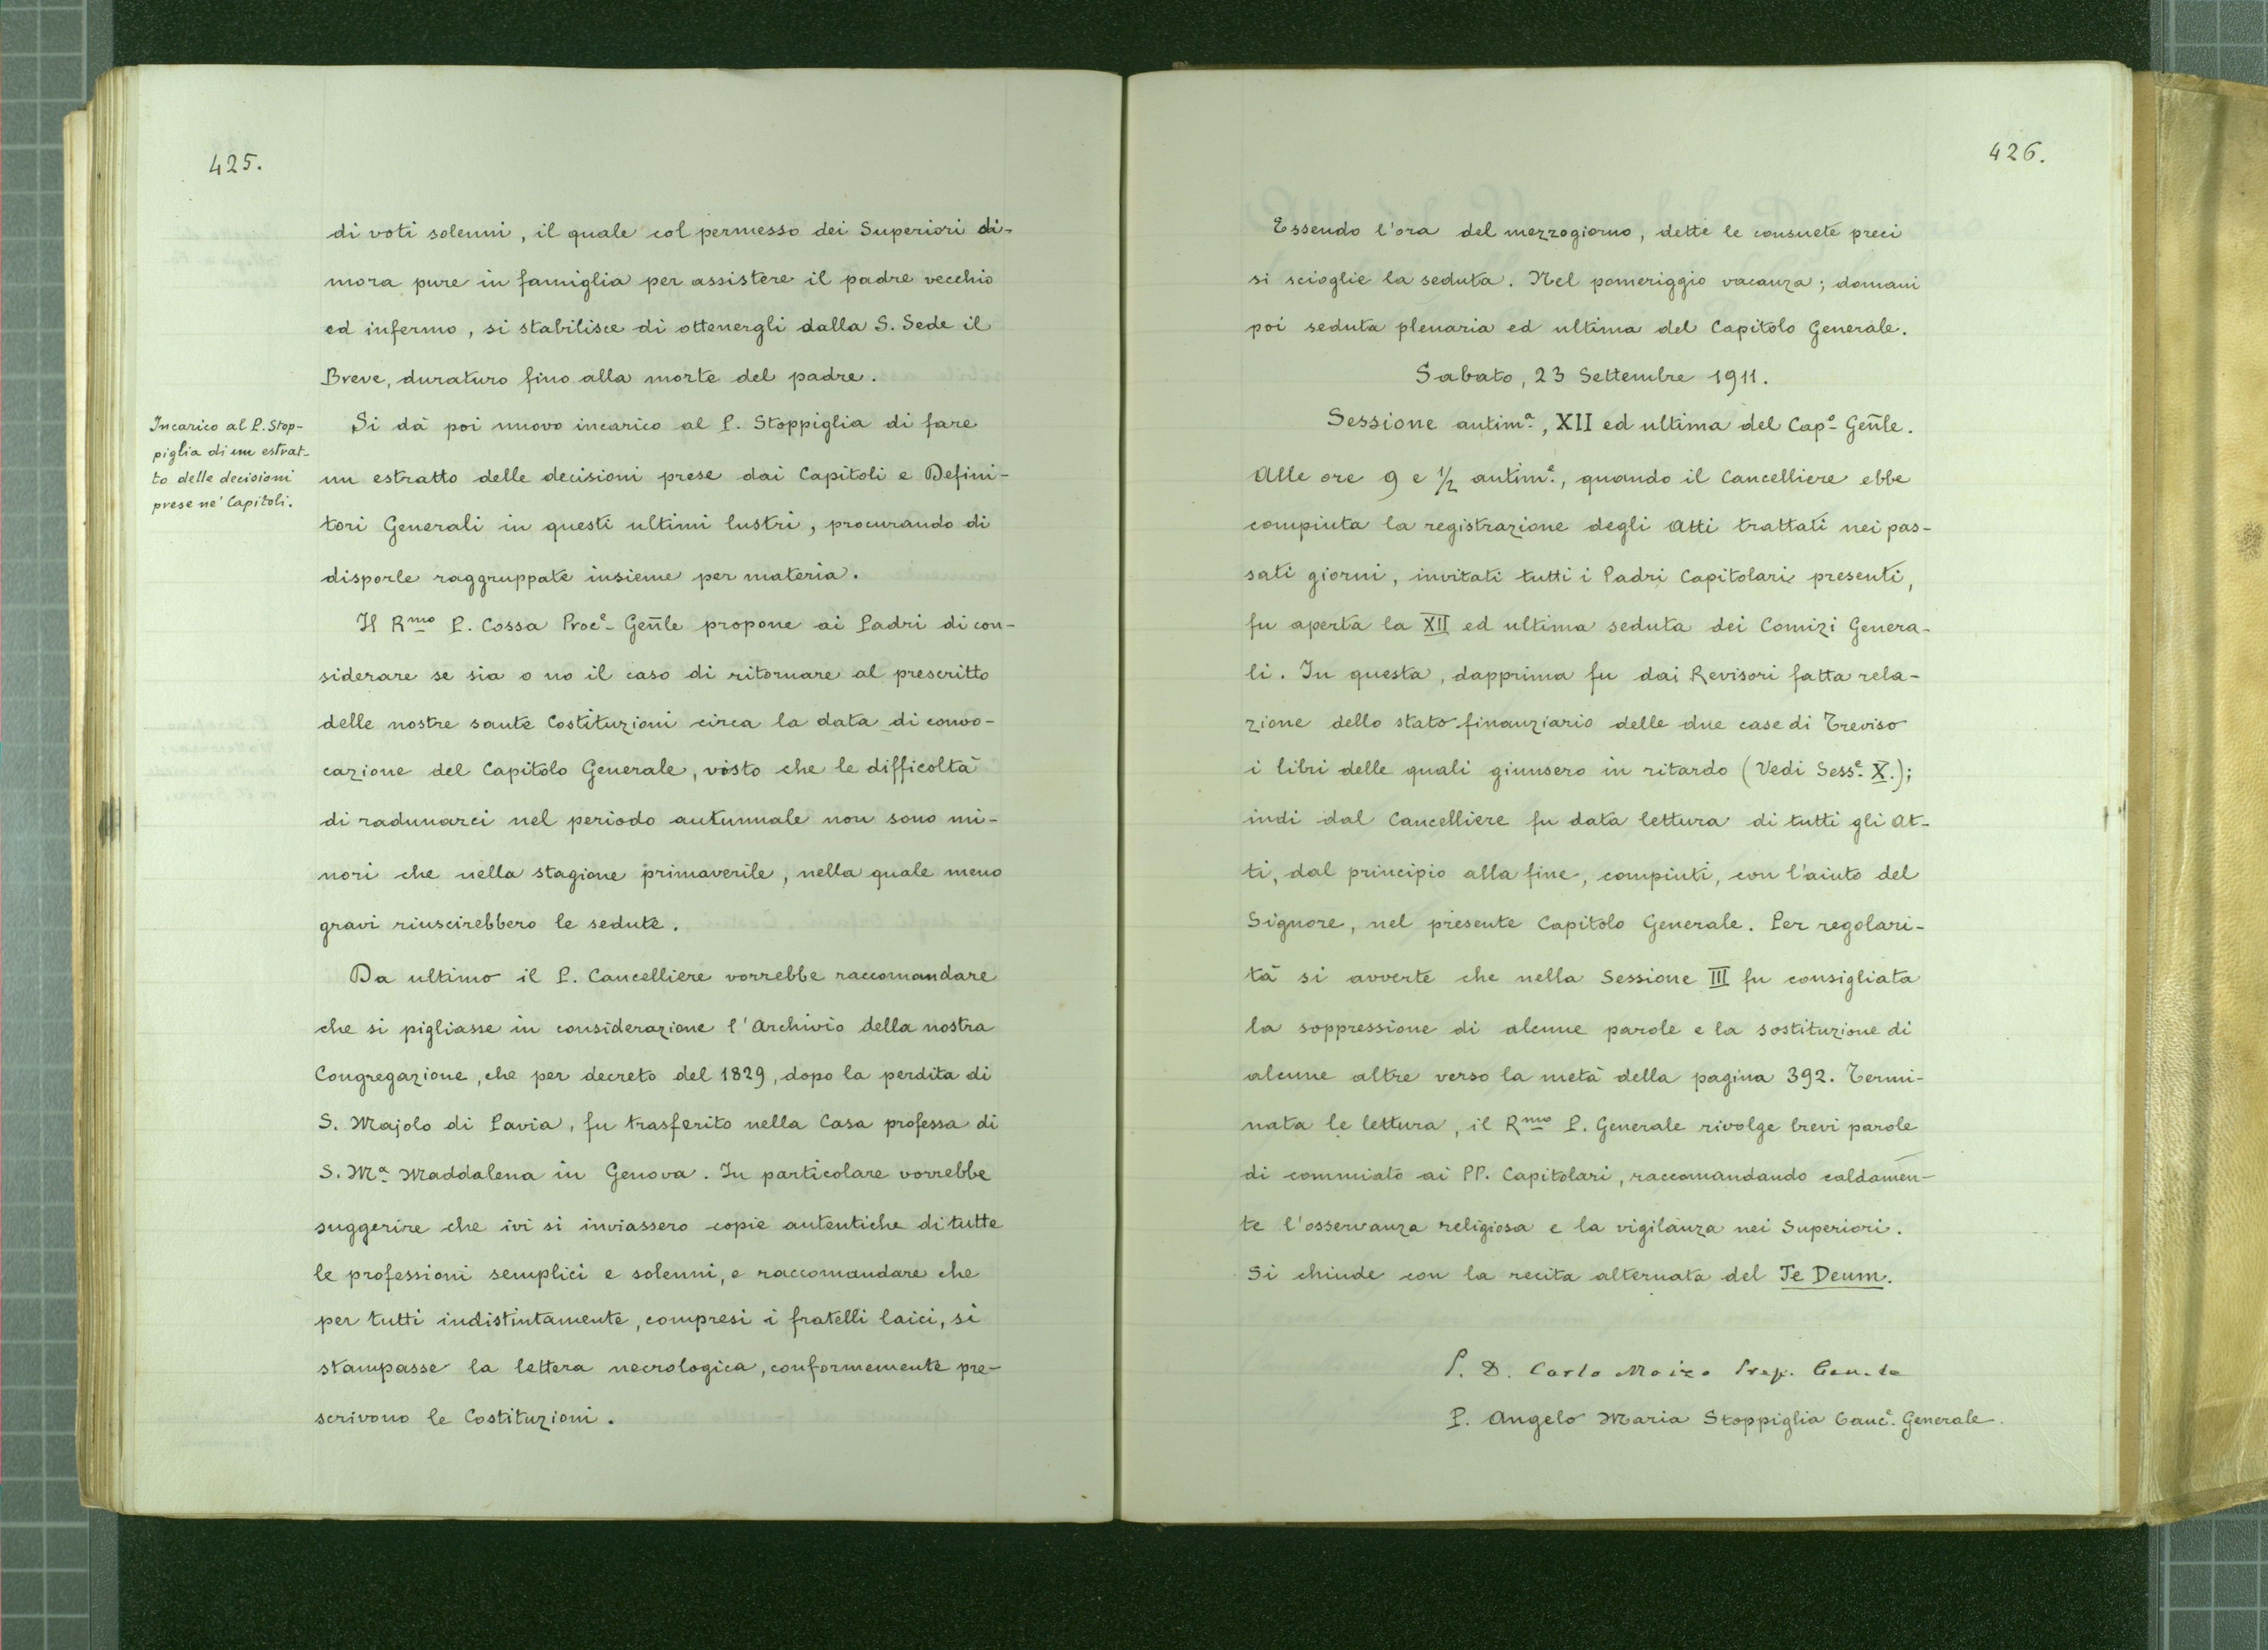 425.
di voti solenni, il quale col permesso dei Superiori di-
mora pure in famiglia per assistere il padre vecchio
ed infermo, si stabilisce di ottenergli dalla S. Sede il
Breve, duraturo fino alla morte del padre.
Incarico al P. Stop-
piglia di un estrat-
to delle decisioni
prese ne' Capitoli.
Si dà poi nuovo incarico al P. Stoppiglia di fare
un estratto delle decisioni prese dai Capitoli e Defini-
tori Generali in questi ultimi lustri, procurando di
disporle raggruppate insieme per materia.
Il Rmo P. Cossa Proce Gen̄le propone ai Padri di con-
siderare se sia o no il caso di ritornare al prescritto
delle nostre sante Costituzioni circa la data di convo-
cazione del Capitolo Generale, visto che le difficoltà
di radunarci nel periodo autunnale non sono mi-
nori che nella stagione primaverile, nella quale meno
gravi riuscirebbero le sedute.
Da ultimo il P. Cancelliere vorrebbe raccomandare
che si pigliasse in considerazione l'Archivio della nostra
Congregazione, che per decreto del 1829, dopo la perdita di
S. Majolo di Pavia, fu trasferito nella Casa professa di
S. Ma Maddalena in Genova. In particolare vorrebbe
suggerire che ivi si inviassero copie autentiche di tutte
le professioni semplici e solenni, e raccomandare che
per tutti indistintamente, compresi i fratelli laici, si
stampasse la lettera necrologica, conformemente pre-
scrivono le Costituzioni.
426.
Essendo l'ora del mezzogiorno, dette le consuete preci
si scioglie la seduta. Nel pomeriggio vacanza; domani
poi seduta plenaria ed ultima del Capitolo Generale.
Sabato, 23 Settembre 1911.
Sessione antima, XII ed ultima del Capo Gen̄le.
Alle ore 9 e 1/2 antime, quando il Cancelliere ebbe
compiuta la registrazione degli Atti trattati nei pas-
sati giorni, invitati tutti i Padri Capitolari presenti,
fu aperta la XII ed ultima seduta dei Comizi Genera-
li. In questa, dapprima fu dai Revisori fatta rela-
zione dello stato finanziario delle due case di Treviso
i libri delle quali giunsero in ritardo (Vedi Sesse X.);
indi dal Cancelliere fu data lettura di tutti gli At-
ti, dal principio alla fine, compiuti, con l'aiuto del
Signore, nel presente Capitolo Generale. Per regolari-
tà si avverte che nella Sessione III fu consigliata
la soppressione di alcune parole e la sostituzione di
alcune altre verso la metà della pagina 392. Termi-
nata le lettura, il Rmo P. Generale rivolge brevi parole
di commiato ai PP. Capitolari, raccomandando caldamen-
te l'osservanza religiosa e la vigilanza nei Superiori.
Si chiude con la recita alternata del Te Deum.
P. D. Carlo Moizo Prep. Gen.le
P. Angelo Maria Stoppiglia Cance Generale.